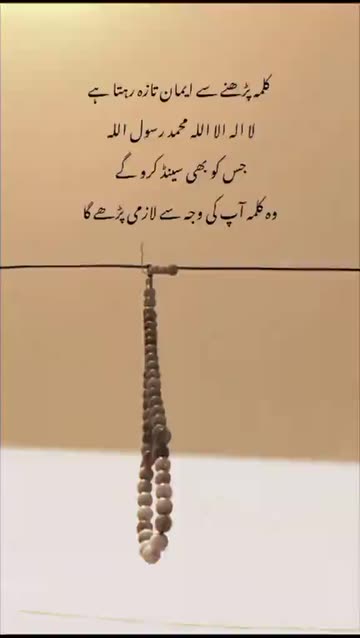 کلمہ پڑھنے سے ایمان تازہ رہتا ہے
لا الہ الا اللہ محمد رسول اللہ
جس کو بھی سینڈ کرو گے
وہ کلمہ آپ کی وجہ سے لازمی پڑھے گا